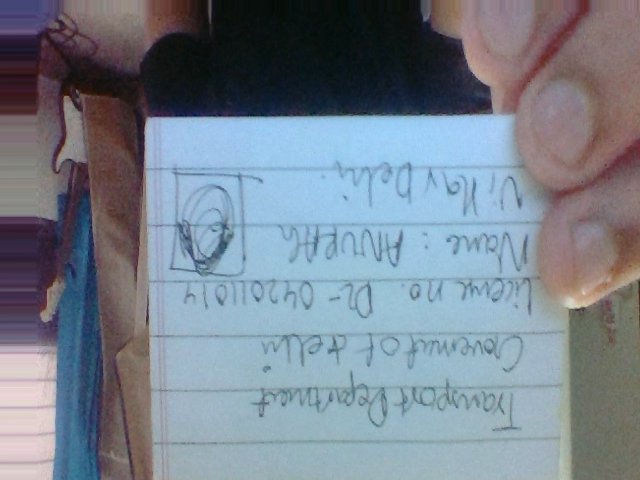 Transport Department
Goverment of delhi
License no. DL- 042011014
Name : ANURAG
Delhi